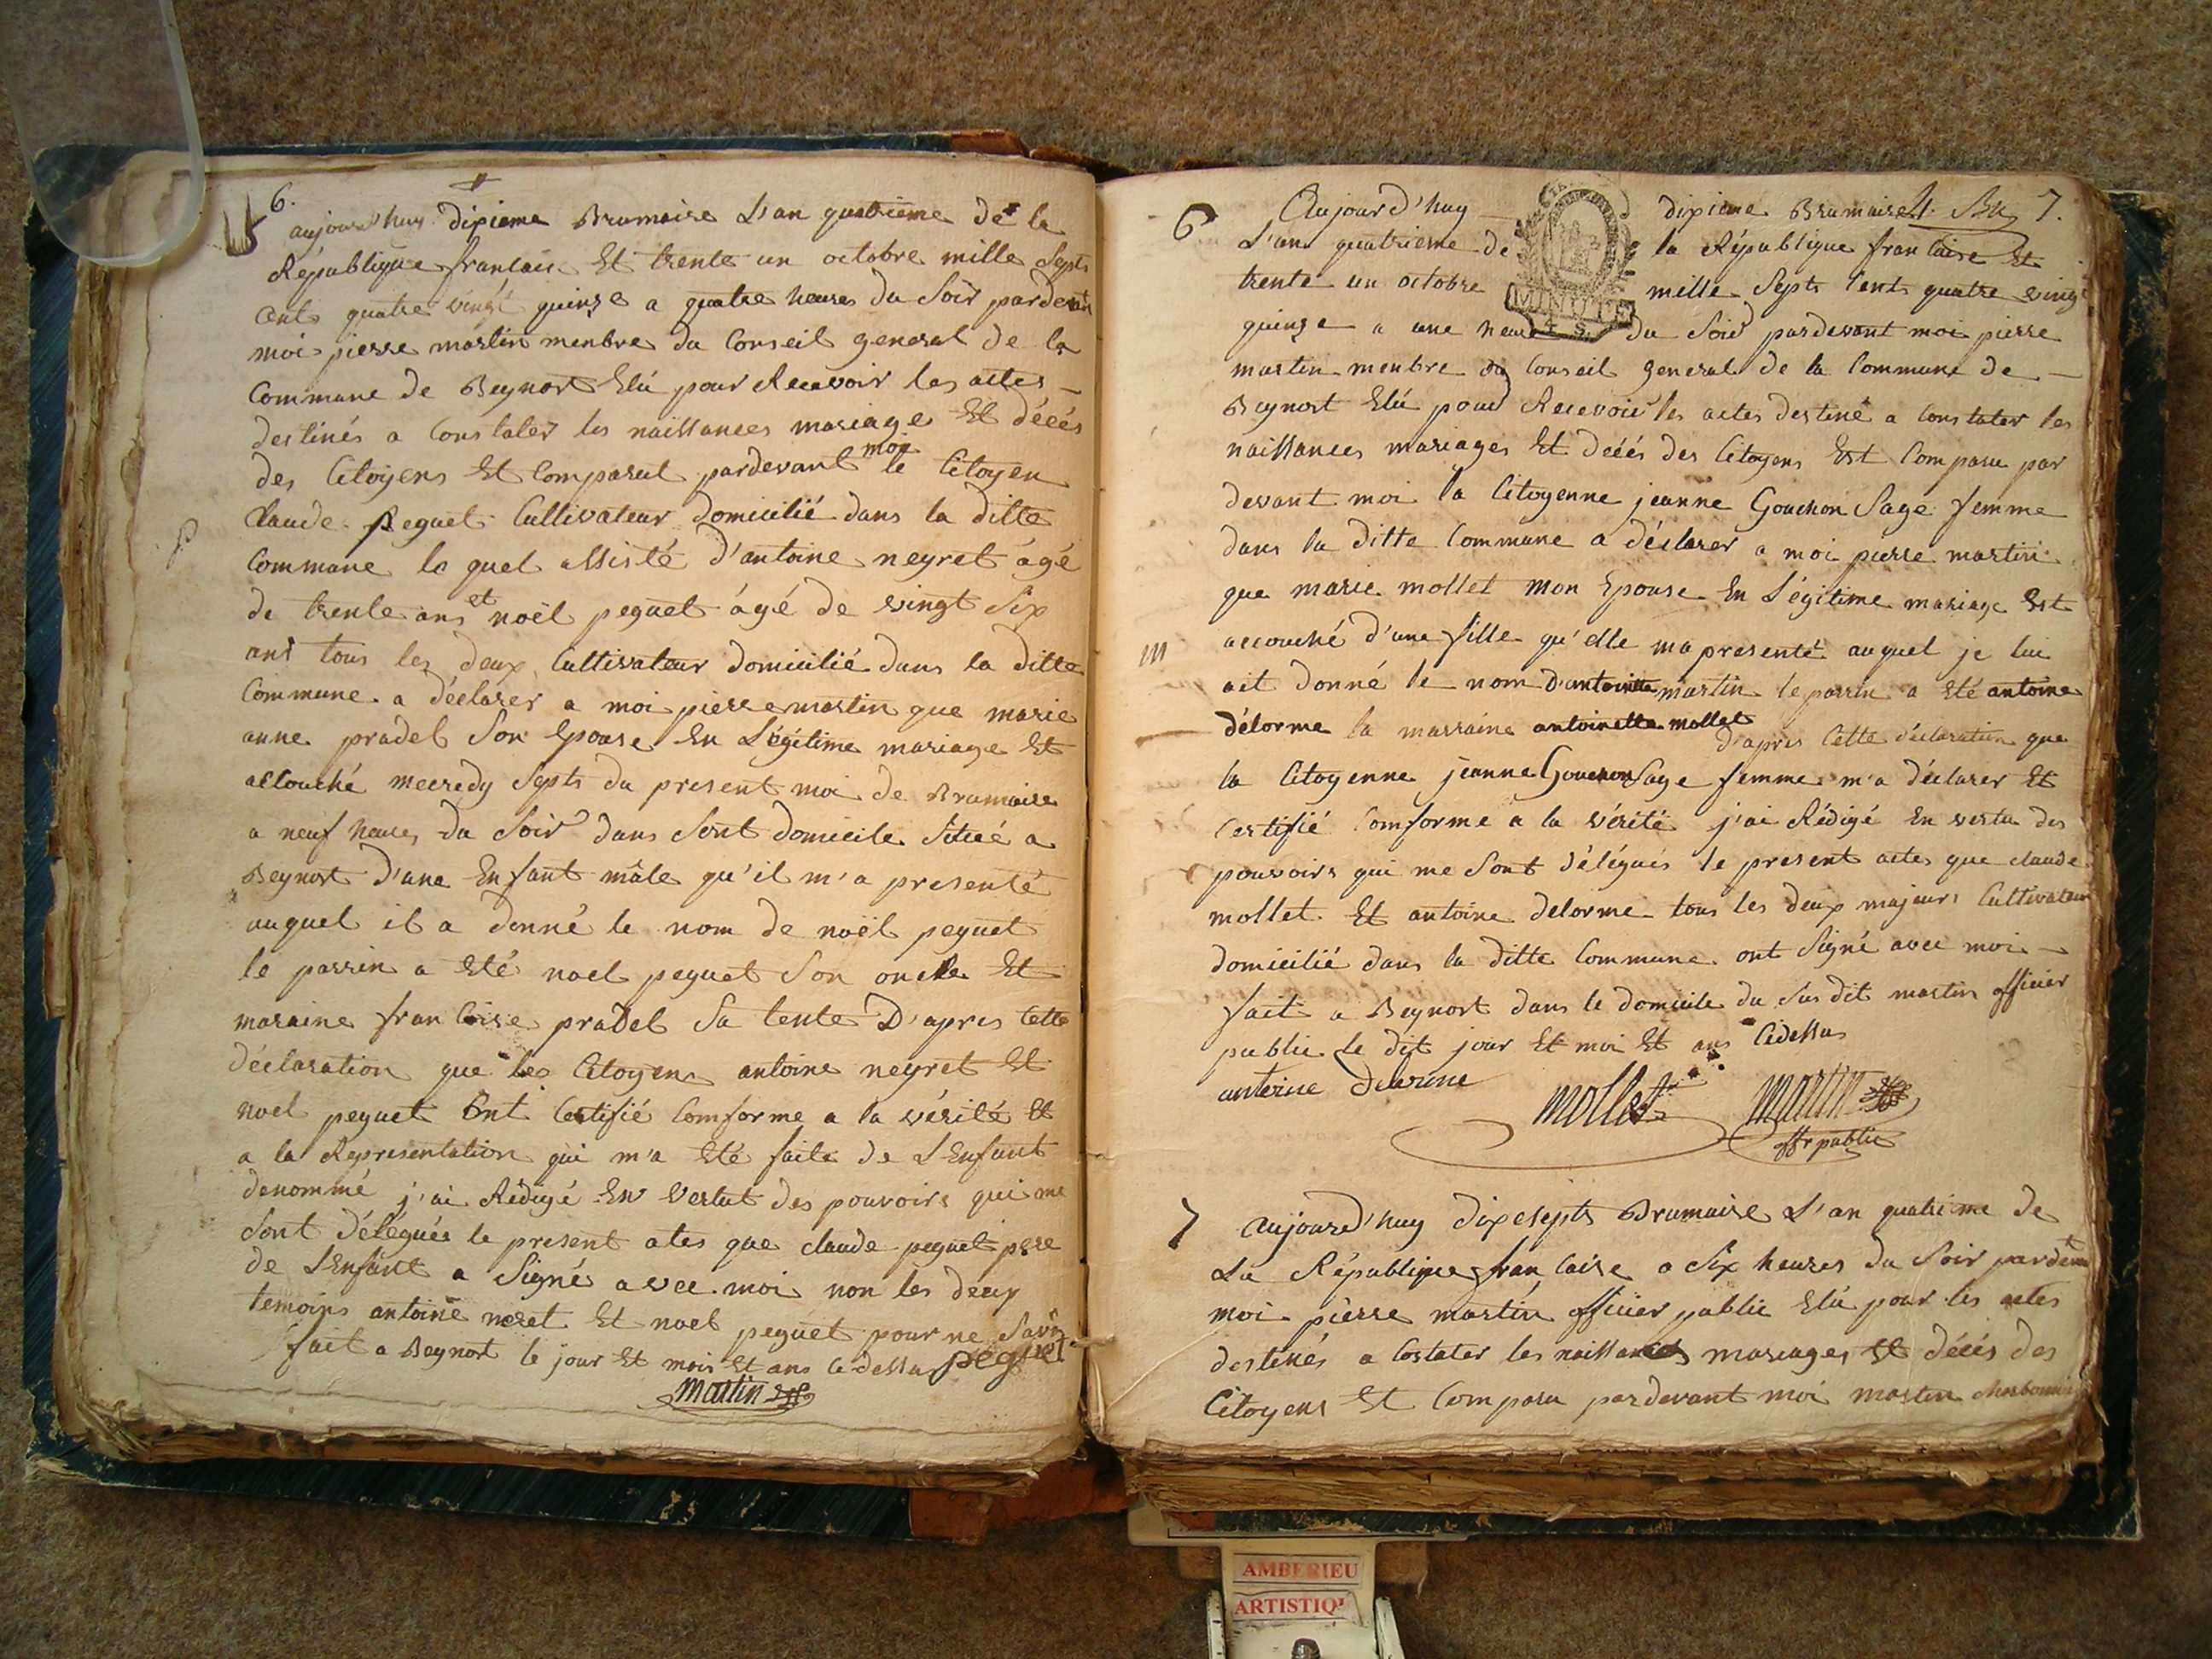 6.
5
aujourd'huy dixieme Brumaire L'an quatrieme de la
République francaise Et trente un octobre mille Septs
cents quatre vingt quinze a quatre heures du Soir pardevant
moi pierre martin menbre du Conseil general de la
Commune de Beynost Elú pour Recevoir les actes
destinés a Constater les naissances mariage Et décés
des Citoyens Et Comparut pardevant moi le Citoyen
Claude peguet Cultivateur domicilié dans la ditte
Commune le quel assisté d'antoine neyret àgé
de trente ans et noël peguet àgé de vingt Six
ans tous les deux Cultivateur domicilié dans la ditte
Commune a déclarer a moi pierre martin que marie
anne pradel Son Epouse En Légitime mariage Et
accouché mecredy Septs du present moi de Brumaire
a neuf heures du Soir dans Sont domicile Situé a
Beynost d'une Enfant mâle qu'il m'a presenté
auquel il a donné le nom de noël peguet
le parrin a Eté noel peguet Son oncle Et
maraine francoise pradel Sa tente D'apres Cette
déclaration que les Citoyens antoine neyret Et
noel peguet Ont Certifié Comforme a la vérité Et
a la Representation qui m'a Eté faite de L'Enfant
denommé j'ai Rédigé En Vertut des pouvoirs qui me
Sont délégués le present ates que claude peguet pere
de L'Enfant a Signés avec moi non les deux
temoins antoine neret Et noel peguet pour ne Savoir
fait a Beynost le jour Et mois Et ans Cidessus peguet
martin
7.
6
Aujourd'huy dixieme Brumaire
L'an quatrieme de la République francaise Et
trente un octobre mille Septs Cents quatre vingt
MINUTE
quinze a une heure du Soir pardevant moi pierre
martin menbre du Conseil general de la Commune de
Beynost Elú pour Recevoir les actes destiné a Constater les
naissances mariages Et décés des Citoyens Est Comparu par
devant moi la Citoyenne jeanne Gouchon Sage femme
dans la ditte Commune a déclarer a moi pierre martin
que marie mollet mon Epouse En Légitime mariage Est
m
accouché d'une fille qu'elle ma presenté auquel je lui
ait donné le nom D'antoinette martin le parrin a Eté antoine
délorme la marraine antoinette mollet
d'apres Cette déclaration que
la Citoyenne jeanne Gouchon Sage femme m'a déclarer Et
Certifié Comforme a la vérité j'ai Rédigé En vertu des
pouvoirs qui me Sont délégués le present actes que claude
mollet Et antoine delorme tous les deux majeurs Cultivateur
domicilié dans la ditte Commune ont Signé avec moi
fait a Beynost dans le domicile du Sus dit martin officier
public le dit jour Et moi Et ans Cidessus
antoine delorme mollet martin
offr public
7
aujourd'huy dixesepts Brumaire L'an quatrième de
La République francaise a Six heures du Soir pardevant
moi pierre martin officier public Elú pour les actes
destinés a Costater les naissances mariages Et décés des
Citoyens Et Comparu pardevant moi martin
AMBERIEU
ARTISTIQ